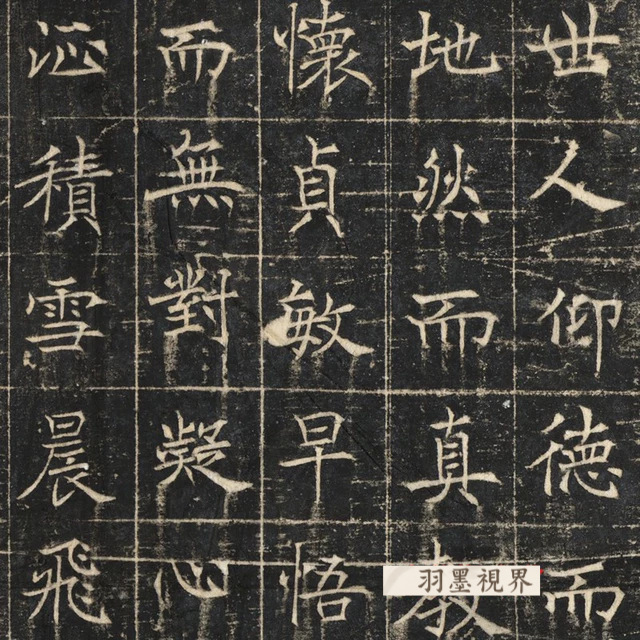 世人仰德而
地然而真教
懷貞敏早悟
而無對凝心
征積雪晨飛
羽墨視界